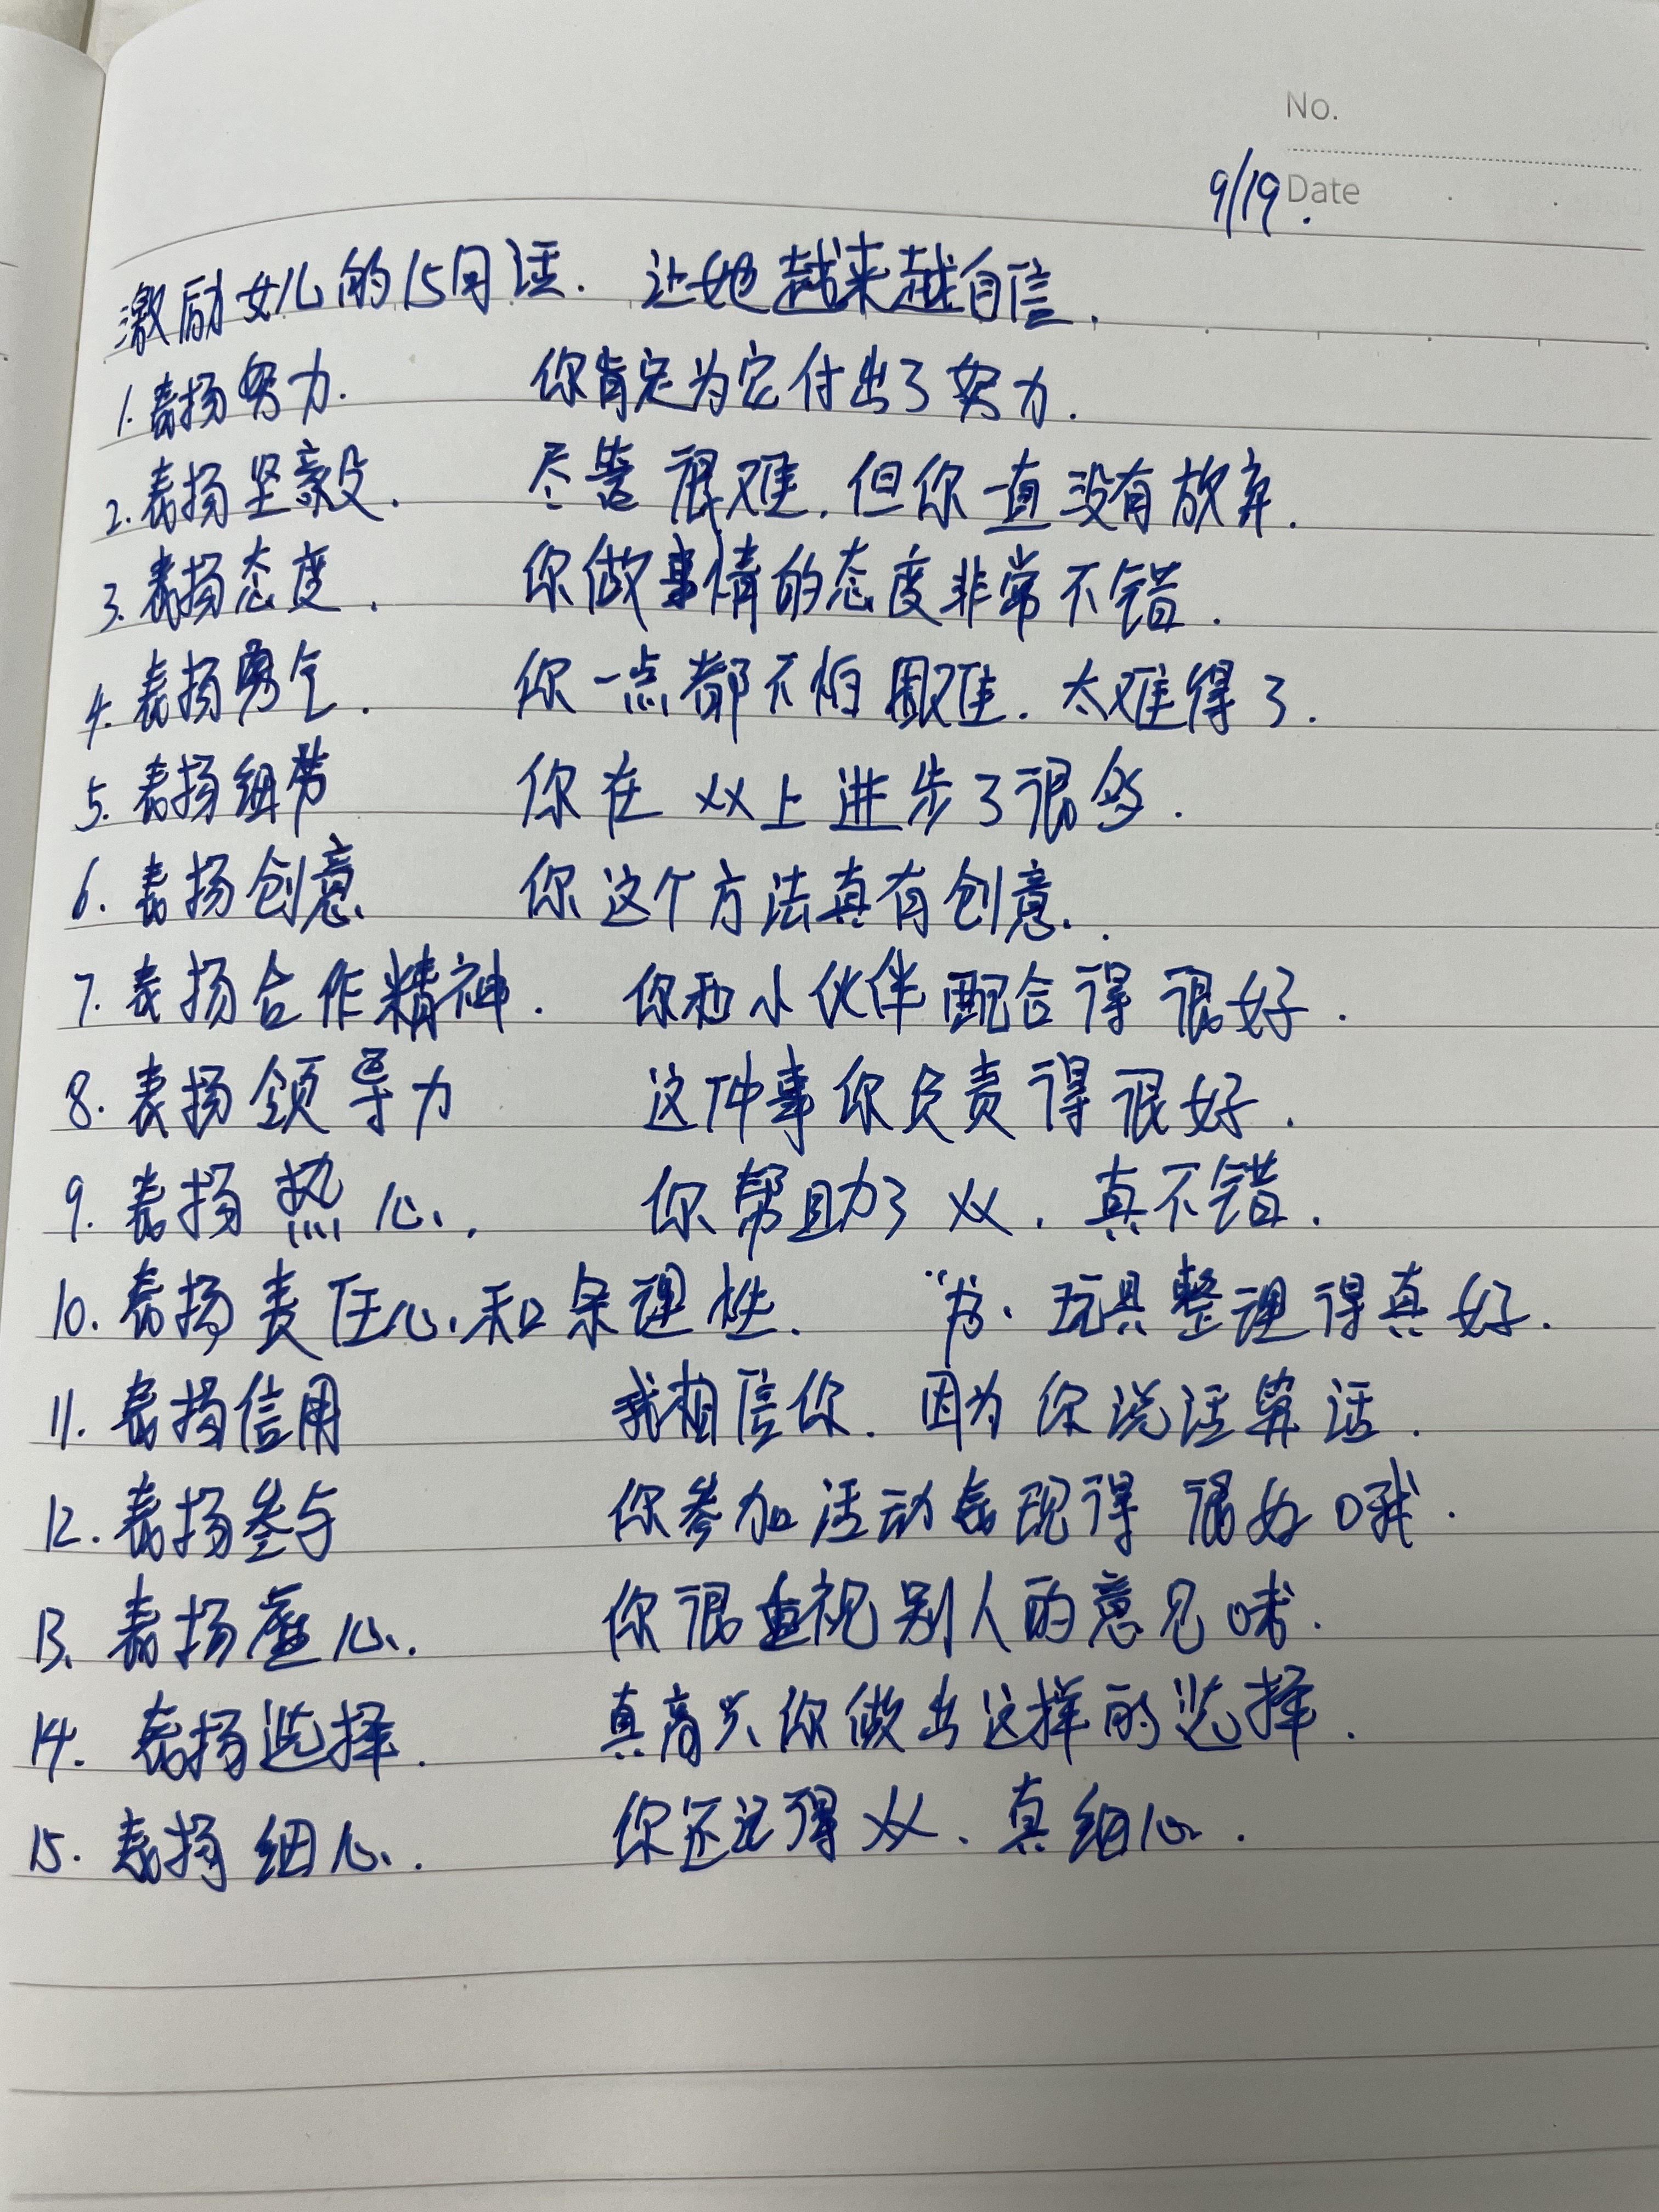 No.
9/19. Date
激励女儿的15句话. 让她越来越自信.
1. 表扬努力. 你肯定为它付出了努力.
2. 表扬坚毅. 尽管很难.但你一直没有放弃.
3. 表扬态度. 你做事情的态度非常不错.
4. 表扬勇气. 你一点都不怕困难.太难得了.
5. 表扬细节 你在 XX上进步了很多.
6. 表扬创意 你这个方法真有创意.
7. 表扬合作精神. 你和小伙伴配合得很好.
8. 表扬领导力 这件事你负责得很好.
9. 表扬热心. 你帮助了XX.真不错.
10. 表扬责任心和条理性. 书、玩具整理得真好.
11. 表扬信用 我相信你.因为你说话算话.
12. 表扬参与 你参加活动表现得很好哦.
13. 表扬虚心. 你很重视别人的意见哦.
14. 表扬选择. 真高兴你做出这样的选择.
15. 表扬细心. 你还记得XX、真细心.